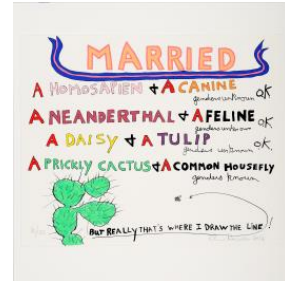 MARRIED
A HOMOSAPIEN & A CANINE OK
genders unknown
A NEANDERTHAL & A FELINE OK
genders unknown
A DAISY & A TULIP OK.
genders unknown
A PRICKLY CACTUS & A COMMON HOUSEFLY
genders known
BUT REALLY THAT'S WHERE I DRAW THE LINE!!